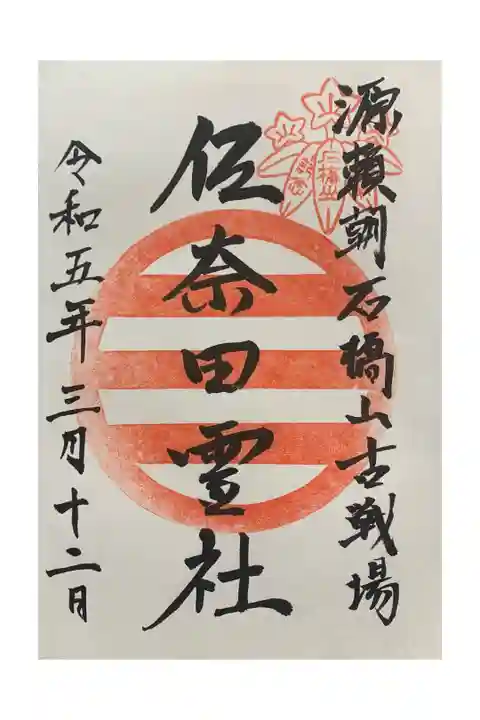 源頼朝石橋山古戦場
佐奈田霊社
令和五年三月十二日
石橋山